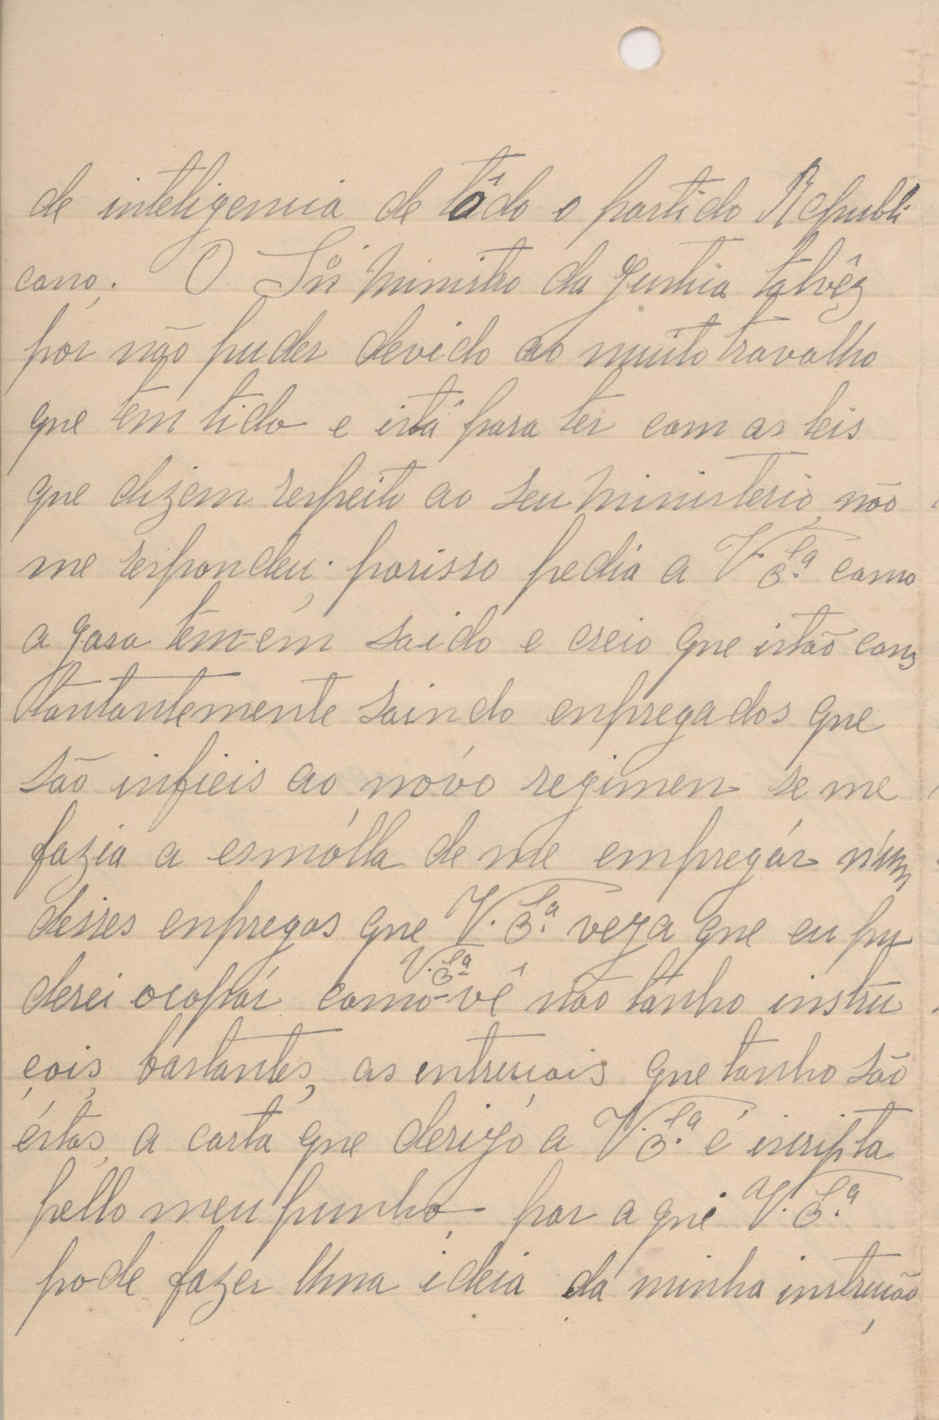 de inteligencia de tôdo o partido Republi
cano; O Snr Ministro da Justiça talvêz
por não puder devido ao muito travalho
que tem tido e istá para ter com as leis
que dizem respeito ao seu Ministerio, não
me respondeu; porisso pedia a V. S.ª como
agora tem-em saido e creio que istão cons
tantantemente saindo enpregados que
são infieis ao nóvo regimen se me
fazia a esmólla de me empregár núm
desses enpregos que V. S.ª veja que eu pu
derei ocopár como V. S.ª vê não tanho instru
çois, bastantes, as entruçois que tanho são
éstas, a carta que derijo a V. S.ª é iscripta
pello meu punho, por aqui V. S.ª
pode fazer Uma ideia da minha instrução,